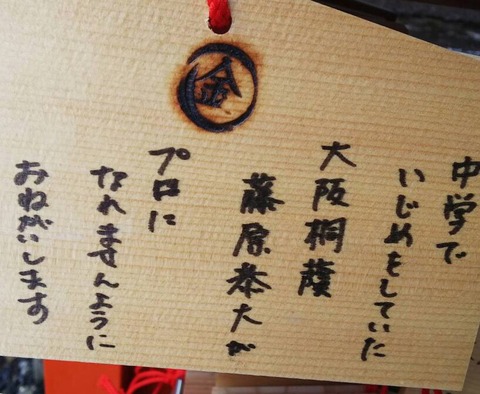 金
中学で
いじめをしていた
大阪桐蔭
藤原恭大が
プロに
なれませんように
おねがいします